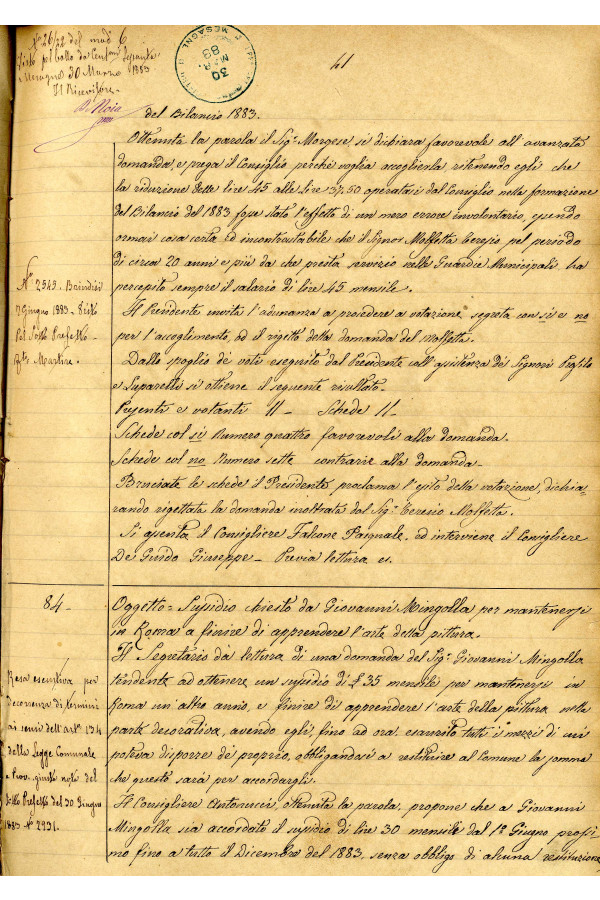 N° 26/22 del mod. 6
Visto pel bollo da Cent.mi sessanta
Mesagne 30 Marzo 1883
Il Ricevitore
MESAGNE
30
MAR.
83
41
del Bilancio 1883.
Ottenuta la parola il Sig.r Morgese si dichiara favorevole all'avanzata
domanda, e prega il Consiglio perché voglia accoglierla ritenendo egli che
la riduzione dalle lire 45 alle lire 37,50 operatasi dal Consiglio nella formazione
del Bilancio del 1883 fosse stato l'effetto di un mero errore involontario, essendo
ormai cosa certa ed incontrastabile che il Signor Molfetta Teresio pel periodo
di circa 20 anni e più da che presta servizio nelle Guardie Municipali, ha
percepito sempre il salario di lire 45 mensile.
Il Presidente invita l'adunanza a procedere a votazione segreta con si e no
per l'accoglimento, od il rigetto della domanda del Molfetta.
Dallo spoglio de' voti eseguito dal Presidente coll'assistenza de' Signori Profilo
e Saparelli si ottiene il seguente risultato.
Presenti e votanti 11 - Schede 11 -
Schede col si Numero quattro favorevoli alla domanda.
Schede col no Numero sette contrarie alla domanda.
Bruciate le schede il Presidente proclama l'esito della votazione, dichia-
rando rigettata la domanda inoltrata dal Sig.r Teresio Molfetta.
Si assenta il Consigliere Falcone Pasquale, ed interviene il Consigliere
De Guido Giuseppe - Previa lettura es.
N° 2549. Brindisi
7 Giugno 1883. Visto
Pel Sotto Prefetto
f.to Martire.
84 -
Oggetto = Sussidio chiesto da Giovanni Mingolla per mantenersi
in Roma a finire di apprendere l'arte della pittura.
Il Segretario dà lettura di una domanda del Sig.r Giovanni Mingolla
tendente ad ottenere un sussidio di £ 35 mensile per mantenersi in
Roma un altro anno, e finire di apprendere l'arte della pittura nella
parte decorativa, avendo egli, fino ad ora, esaurito tutti i mezzi di cui
poteva disporre del proprio, obbligandosi a restituire al Comune la somma
che questo sarà per accordargli.
Il Consigliere Antonucci, ottenuta la parola, propone che a Giovanni
Mingolla sia accordato il sussidio di lire 30 mensile dal 1° Giugno prossi-
mo fino a tutto il Dicembre del 1883, senza obbligo di alcuna restituzione,
Resa esecutiva per
decorrenza di termini
ai sensi dell'art.° 134
della Legge Comunale
e Prov. giusta nota del
Sotto Prefetto del 30 Giugno
1883 N° 2931.